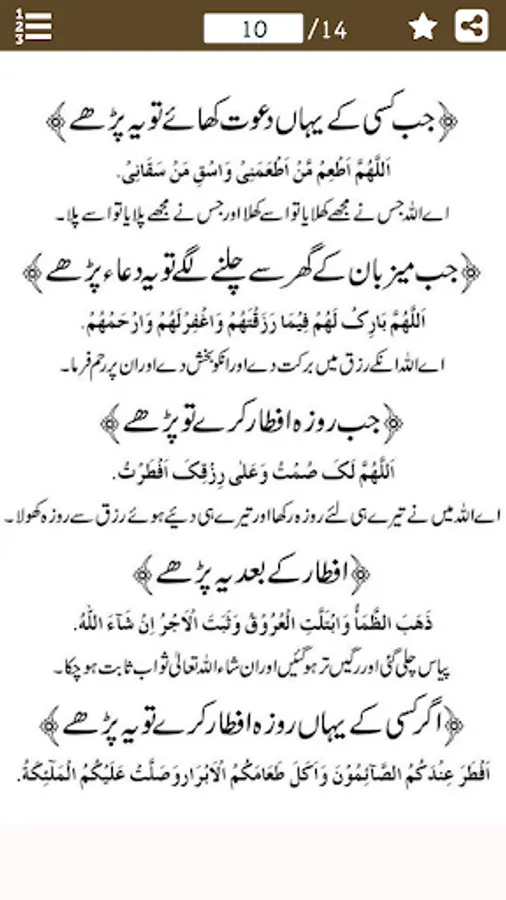 10 /14
جب کسی کے یہاں دعوت کھائے تو یہ پڑھے
اَللّٰهُمَّ اَطْعِمْ مَّنْ اَطْعَمَنِیْ وَاسْقِ مَنْ سَقَانِیْ.
اے اللہ جس نے مجھے کھلایا تو اسے کھلا اور جس نے مجھے پلایا تو اسے پلا۔
جب میزبان کے گھر سے چلنے لگے تو یہ دعاء پڑھے
اَللّٰهُمَّ بَارِکْ لَهُمْ فِیْمَا رَزَقْتَهُمْ وَاغْفِرْلَهُمْ وَارْحَمْهُمْ.
اے اللہ انکے رزق میں برکت دے اور انکو بخش دے اور ان پر رحم فرما۔
جب روزہ افطار کرے تو پڑھے
اَللّٰهُمَّ لَکَ صُمْتُ وَعَلٰی رِزْقِکَ اَفْطَرْتُ.
اے اللہ میں نے تیرے ہی لئے روزہ رکھا اور تیرے ہی دیئے ہوئے رزق سے روزہ کھولا۔
افطار کے بعد یہ پڑھے
ذَهَبَ الظَّمَأُ وَابْتَلَّتِ الْعُرُوْقُ وَثَبَتَ الْاَجْرُ اِنْ شَآءَ اللّٰهُ.
پیاس چلی گئی اور رگیں تر ہوگئیں اور ان شاء اللہ تعالیٰ ثواب ثابت ہوچکا۔
اگر کسی کے یہاں روزہ افطار کرے تو یہ پڑھے
اَفْطَرَ عِنْدَکُمُ الصَّآئِمُوْنَ وَاَکَلَ طَعَامَکُمُ الْاَبْرَارُوَصَلَّتْ عَلَیْکُمُ الْمَلٰٓئِکَةُ.